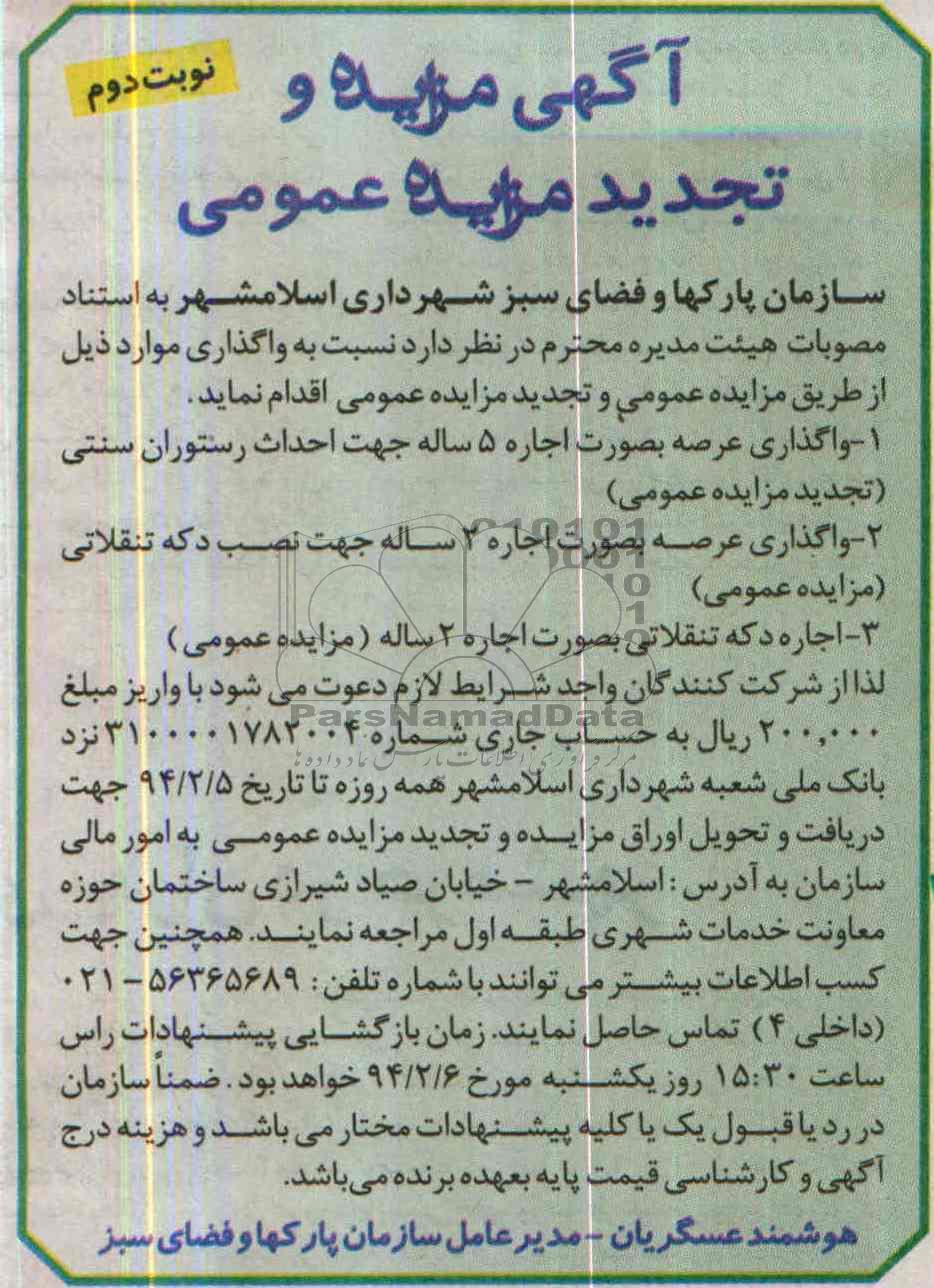 نوبت دوم
آگهی مزایده و
تجدید مزایده عمومی
سازمان پارکها و فضای سبز شهرداری اسلامشهر به استناد
مصوبات هیئت مدیره محترم در نظر دارد نسبت به واگذاری موارد ذیل
از طریق مزایده عمومی و تجدید مزایده عمومی اقدام نماید.
۱-واگذاری عرصه بصورت اجاره ۵ ساله جهت احداث رستوران سنتی
(تجدید مزایده عمومی)
۲-واگذاری عرصه بصورت اجاره ۳ ساله جهت نصب دکه تنقلاتی
(مزایده عمومی)
۳-اجاره دکه تنقلاتی بصورت اجاره ۲ ساله (مزایده عمومی)
لذا از شرکت کنندگان واجد شرایط لازم دعوت می شود با واریز مبلغ
ParsNamadData
۲۰۰,۰۰۰ ریال به حساب جاری شماره ۳۱۰۰۰۰۱۷۸۲۰۰۴ نزد
بانک ملی شعبه شهرداری اسلامشهر همه روزه تا تاریخ ۹۴/۲/۵ جهت
دریافت و تحویل اوراق مزایده و تجدید مزایده عمومی به امور مالی
سازمان به آدرس : اسلامشهر - خیابان صیاد شیرازی ساختمان حوزه
معاونت خدمات شهری طبقه اول مراجعه نمایند. همچنین جهت
کسب اطلاعات بیشتر می توانند با شماره تلفن : ۵۶۳۶۵۶۸۹ - ۰۲۱
(داخلی ۴) تماس حاصل نمایند. زمان بازگشایی پیشنهادات راس
ساعت ۱۵:۳۰ روز یکشنبه مورخ ۹۴/۲/۶ خواهد بود. ضمناً سازمان
در رد یا قبول یک یا کلیه پیشنهادات مختار می باشد و هزینه درج
آگهی و کارشناسی قیمت پایه بعهده برنده می باشد.
هوشمند عسگریان - مدیر عامل سازمان پارکها و فضای سبز